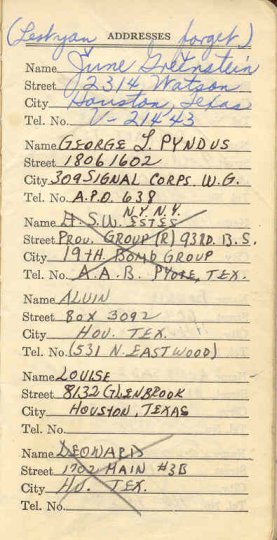 (Lest you forget)
ADDRESSES
Name June Gretnstein
Street 2314 Watson
City Houston, Texas
Tel. No. V-21443
Name GEORGE L. PYNDUS
Street 18061602
City 309 SIGNAL CORPS. W.G.
Tel. No. A.P.O. 638
N.Y. N.Y.
Name H.S.W. ESTES
Street PROV. GROUP (R) 93RD. B.S.
City 19TH. BOMB GROUP
Tel. No. A.A.B. PYOTE, TEX.
Name ALVIN
Street BOX 3092
City HOU. TEX.
Tel. No. (531 N. EASTWOOD)
Name LOUISE
Street 8132 GLENBROOK
City HOUSTON, TEXAS
Tel. No.
Name LEONARD
Street 1702 MAIN #3B
City HO. TEX.
Tel. No.